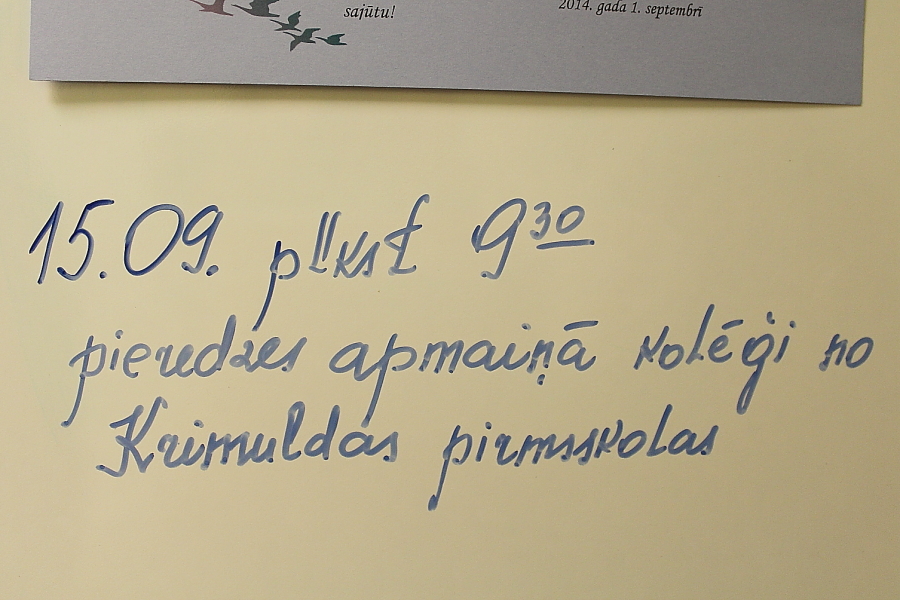 sajūtu!
2014. gada 1. septembrī
15.09. plkst 9 30
pieredzes apmaiņā kolēģi no
Krimuldas pirmsskolas